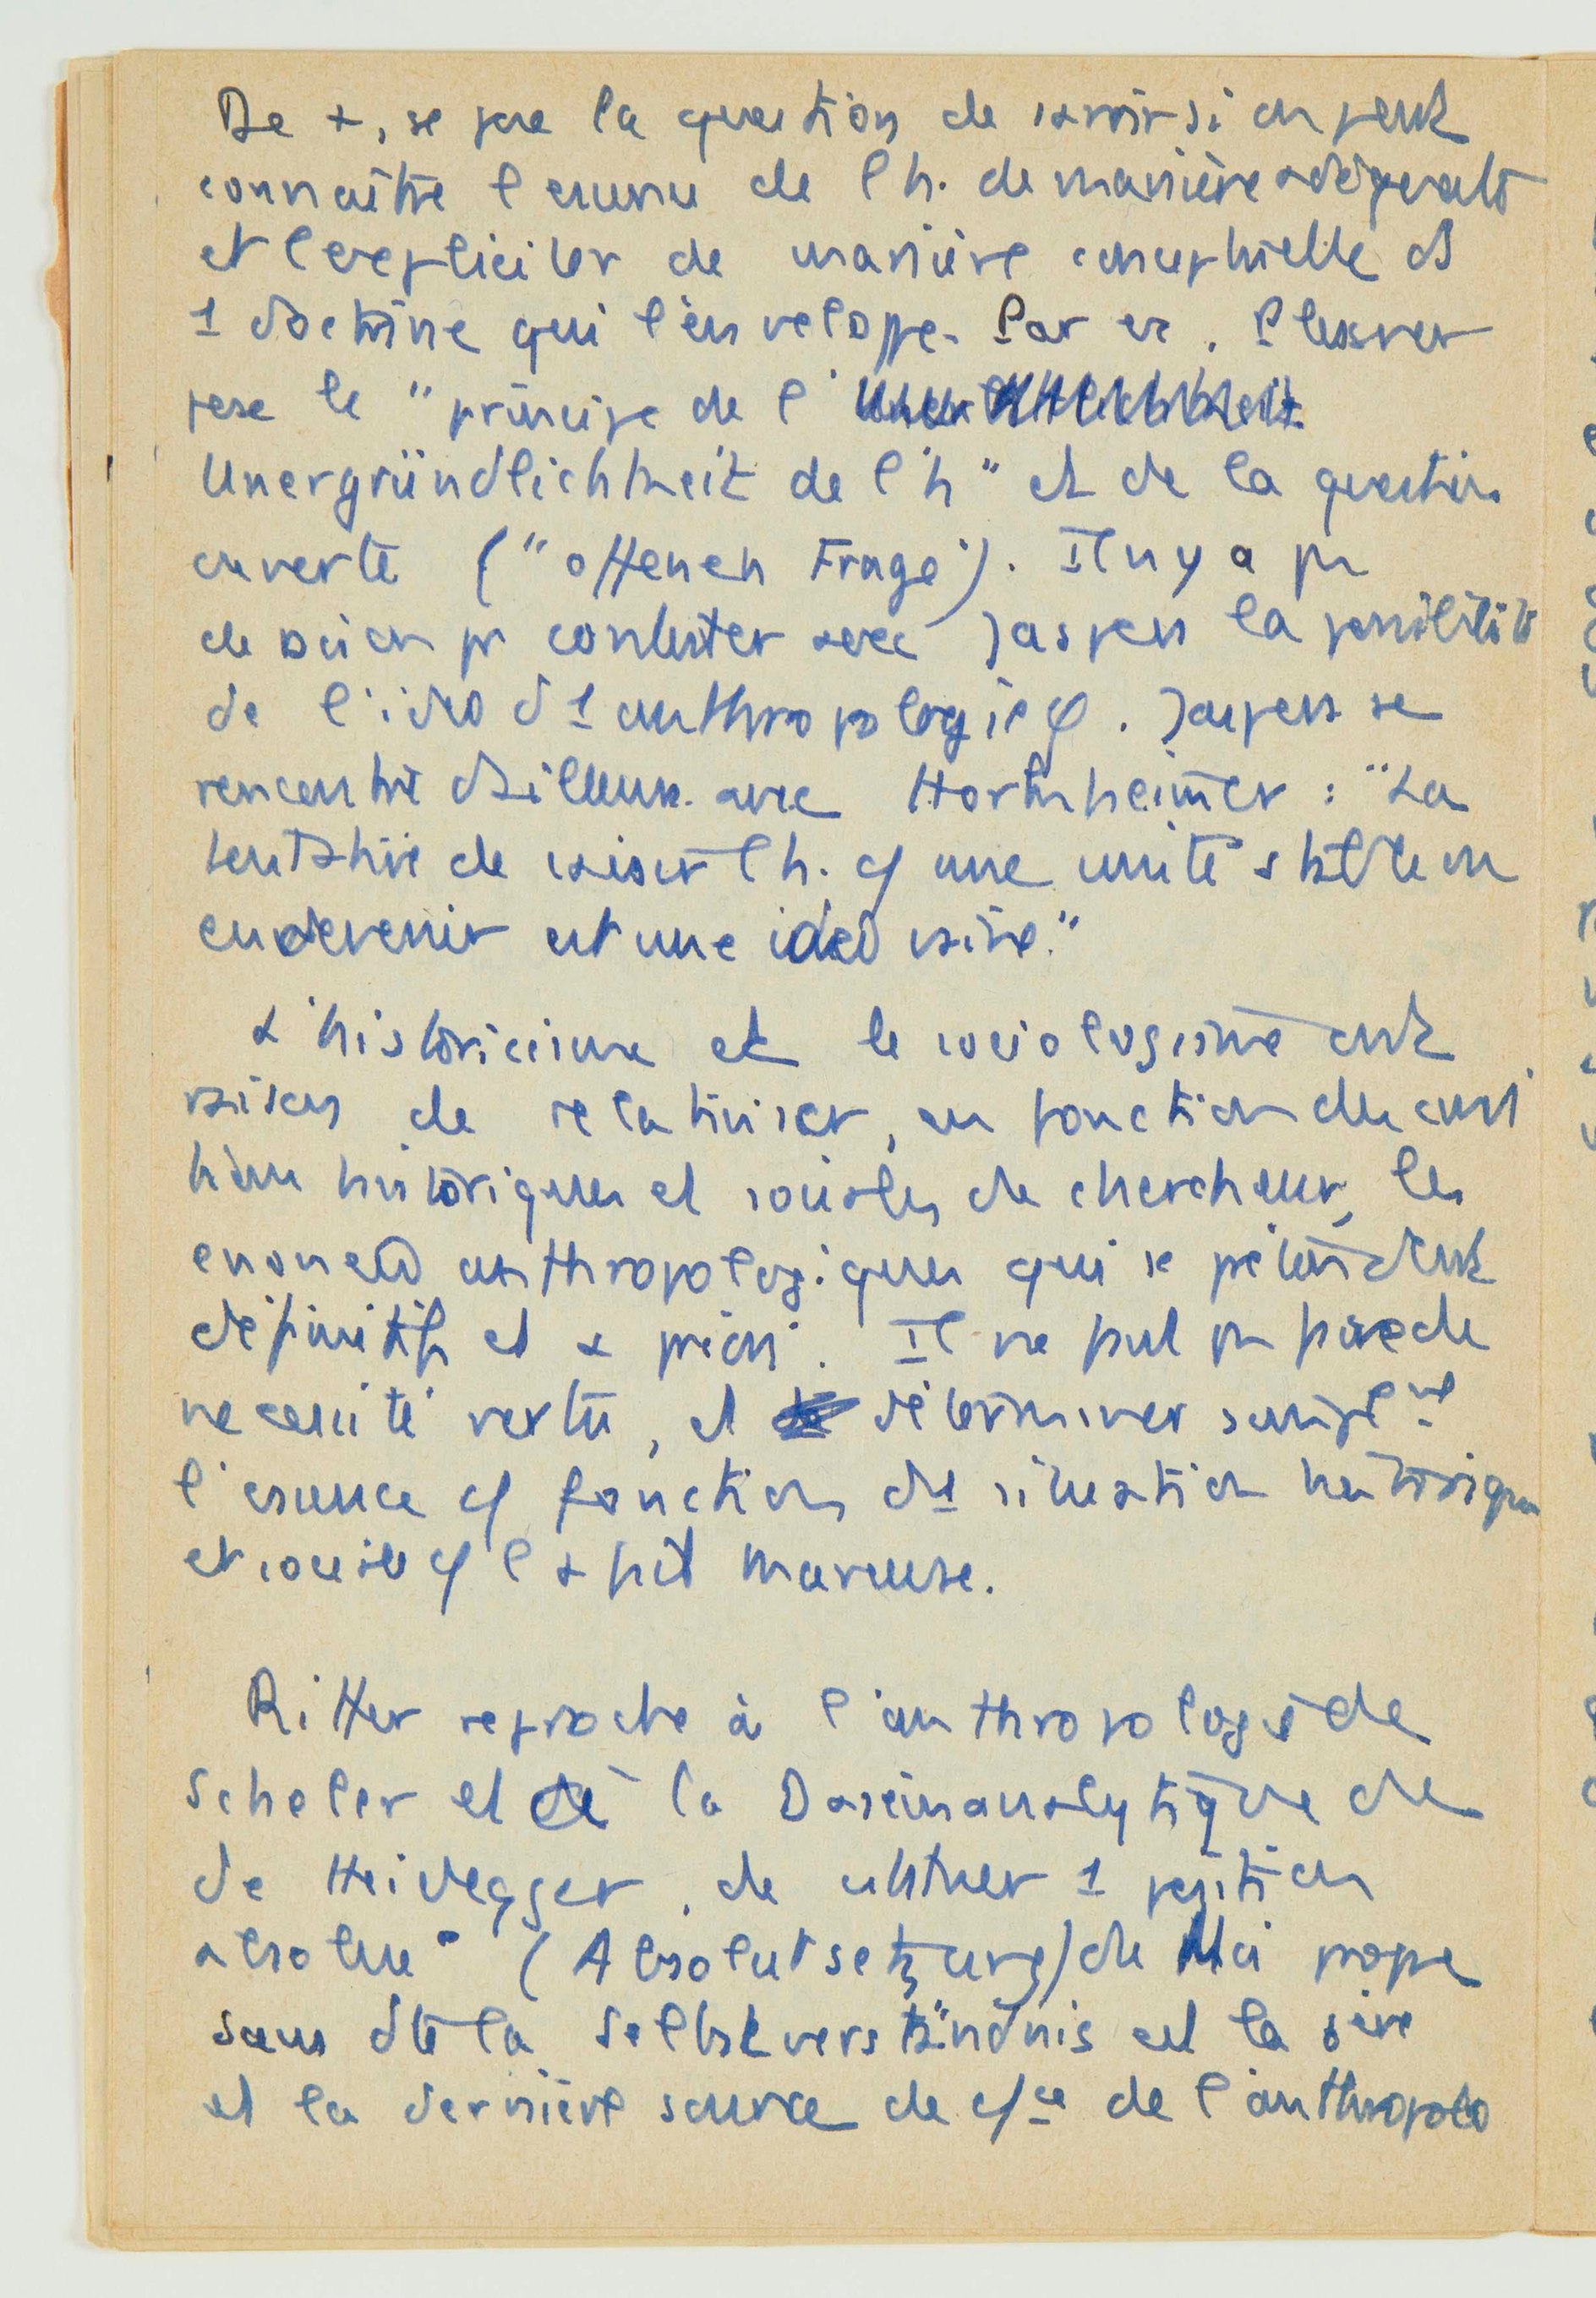 De +, se pose la question de savoir si on peut
connaître l'essence de l'h. de manière adéquate
et l'expliciter de manière conceptuelle ds
1 doctrine qui l'enveloppe. Par ex. Plessner
pose le "principe de l'
Unergründlichkeit de l'h" et de la question
ouverte ("offenen Frage"). Il n'y a pas
de raison pr contester avec Jaspers la possibilité
de l'idée d'1 anthropologie φ. Jaspers se
rencontre d'ailleurs avec Horkheimer : "La
tentative de saisir l'h. cf une unité stable ou
en devenir est une idée vaine."
L'historicisme et le sociologisme ont
raison de relativiser, en fonction des condi
tions historiques et sociales du chercheur, les
énoncés anthropologiques qui se prétendent
définitifs et a priori. Il ne faut pas faire de
nécessité vertu, et déterminer simplemt
l'essence cf fonction d'1 situation historique
et sociale cf l'a fait Marcuse.
Ritter reproche à l'anthropologie de
Scheler et à la Daseinanalytique de
de Heidegger, de 1 position
absolue" (Absolutsetzung) du Moi propre
sans dte la Selbstverständnis est la 1ère
et la dernière source de cfce de l'anthropolo